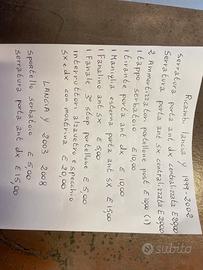 Ricambi lancia y 1999-2002
Serratura porta ant dx centralizzata £ 20,00
Serratura porta ant sx centralizzata £ 20,00
2 Ammortizzatori portellone post £ 10,00 (1)
1 tappo serbatoio £ 10,00
1 tirante porta ant dx £ 10,00
1 Maniglia esterna porta ant sx £ 15,00
1 Fanalino ant £ 5,00
1 Fanale 3° stop portellone £ 5,00
Interruttori alzavetro e specchio
sx e dx con mostrina £ 20,00
LANCIA Y 2003 2008
Sportello serbatoio £ 5,00
serratura porta ant dx £ 15,00
subito